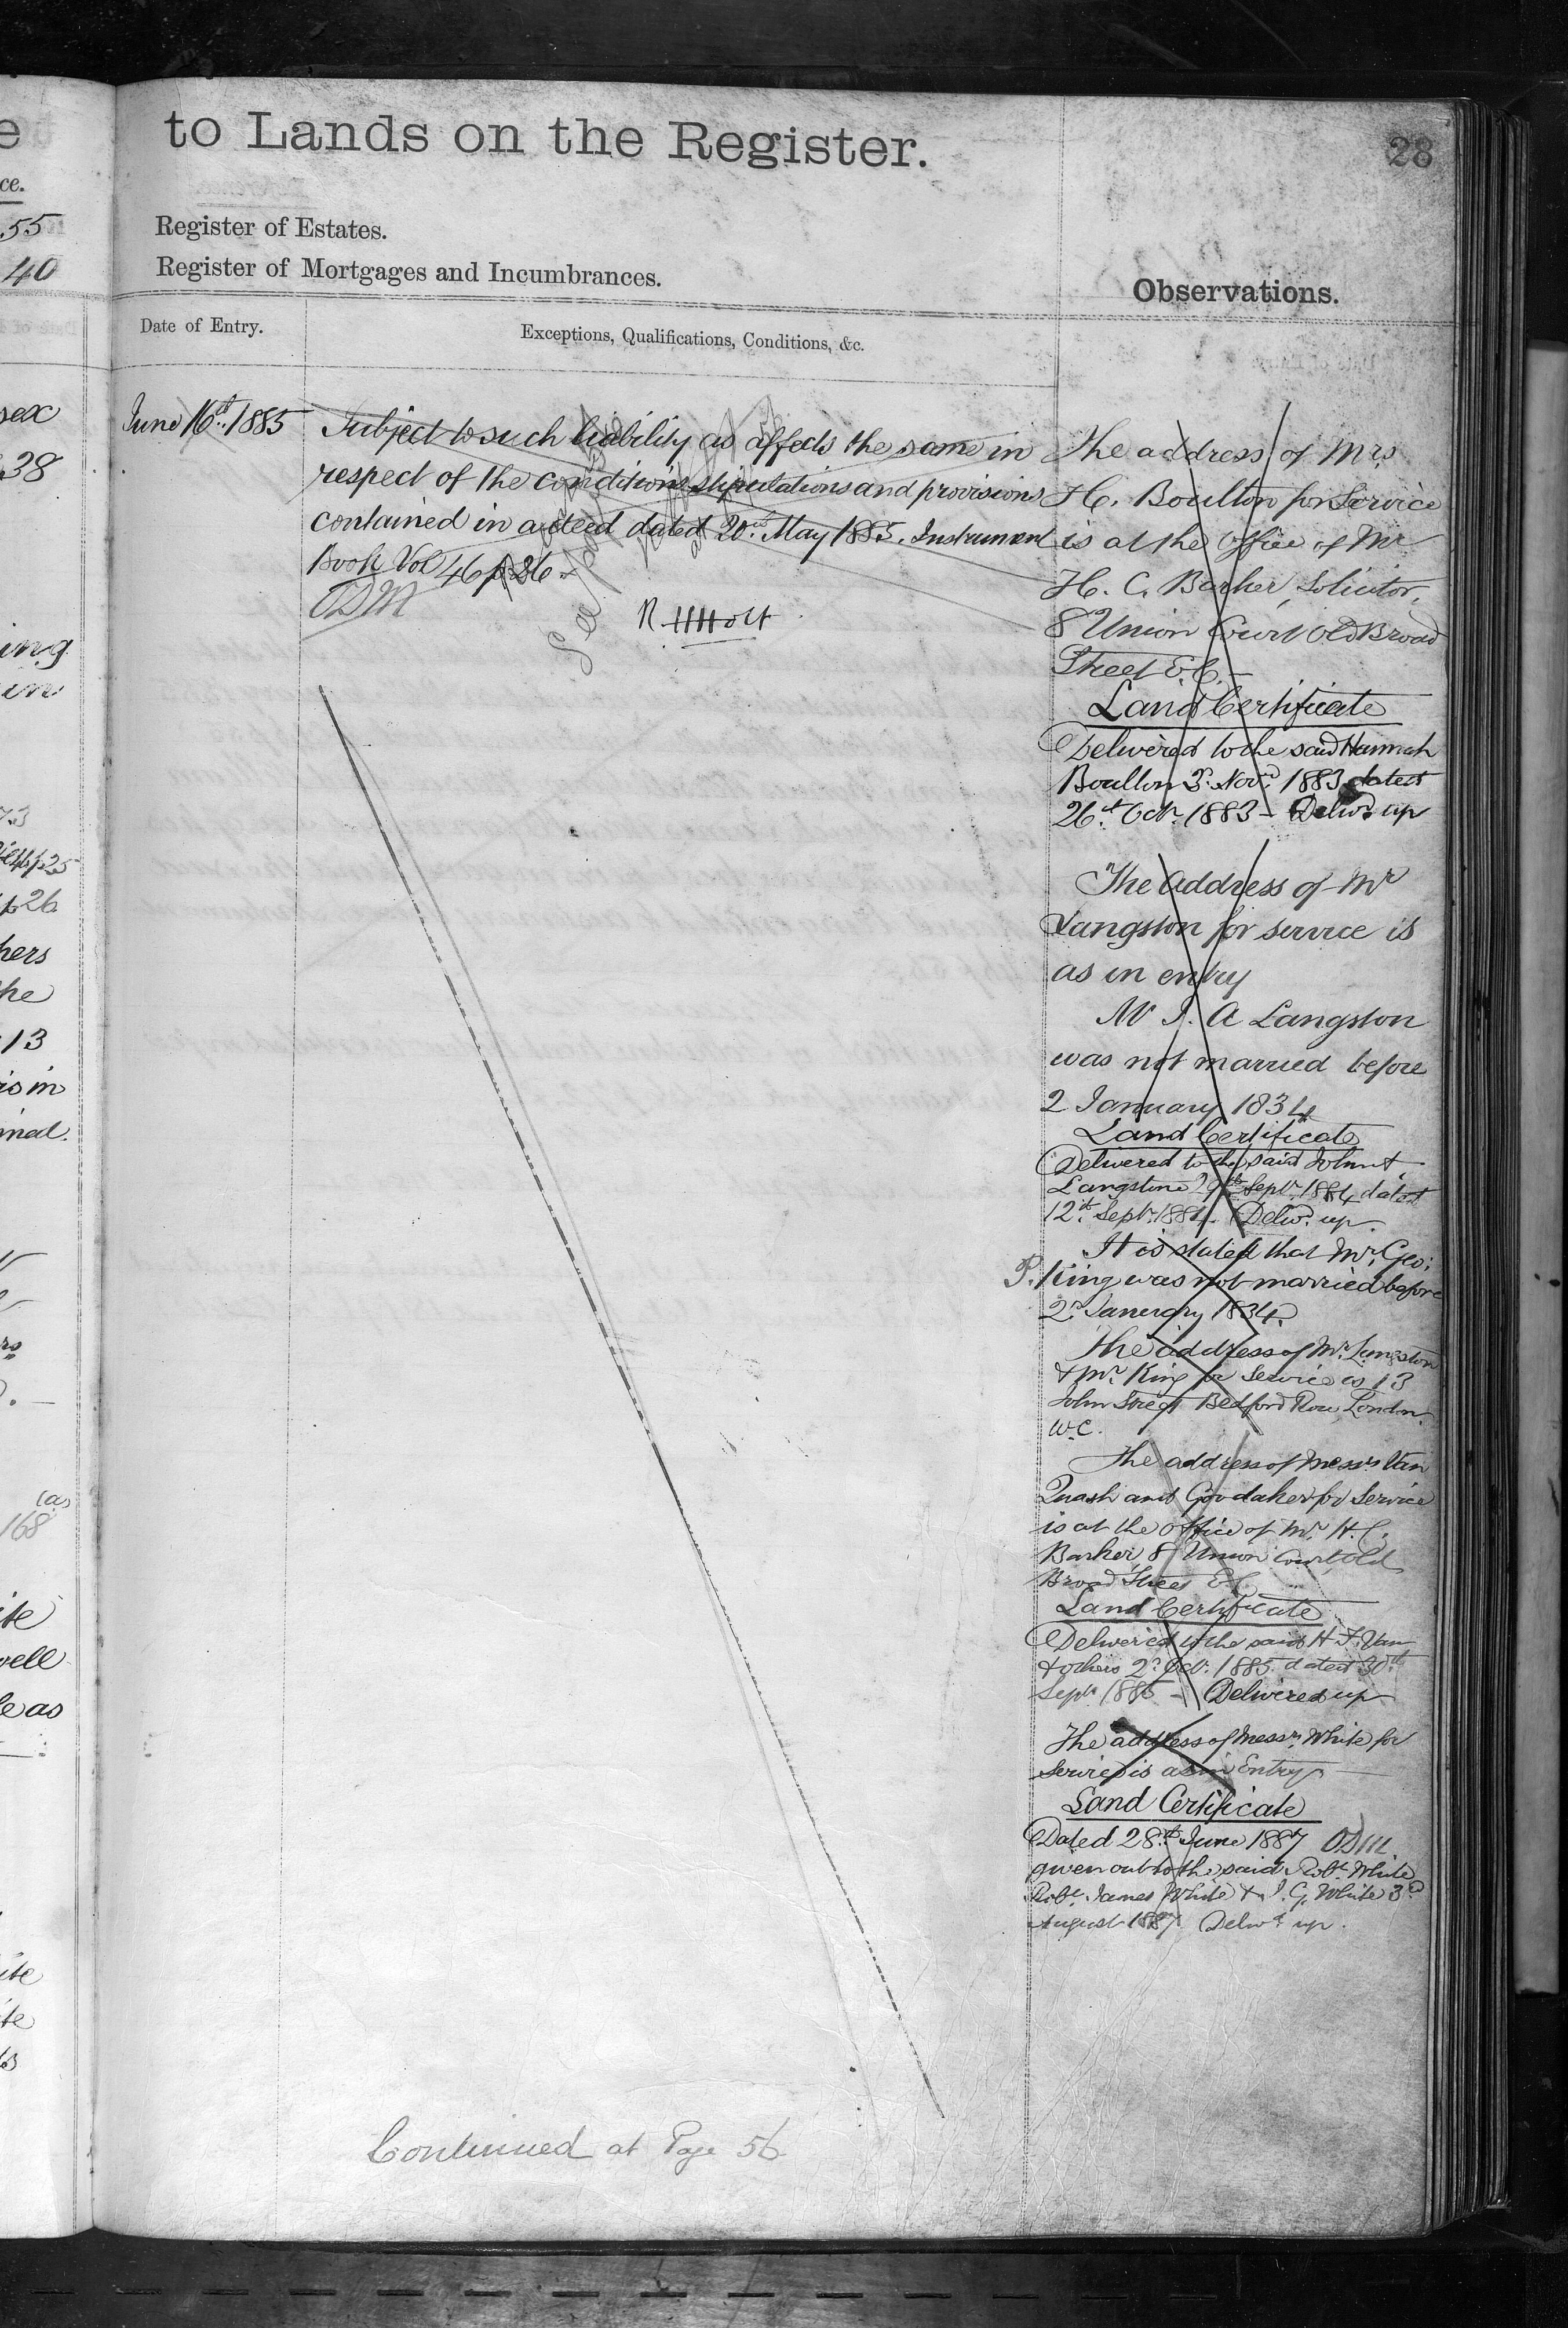 to Lands on the Register.
28
Register of Estates.
Register of Mortgages and Incumbrances.
Observations.
Date of Entry.
Exceptions, Qualifications, Conditions, &c.
June 16th 1885
Subject to such liability as affects the same in
respect of the conditions stipulations and provisions
contained in a deed dated 20th May 1885. Instrument
Book Vol 46 p 26
ODM
R H Holt
Continued at Page 56
The address of Mrs
H. Boulton for Service
is at the Office of Mr
H. C. Barker, Solicitor,
8 Union Court Old Broad
Street E.C. –
Land Certificate
Delivered to the said Hannah
Boulton 3rd Novr 1883 dated
26th Octr 1883 – Delivd up
The Address of Mr
Langston for service is
as in entry
Mr J. A Langston
was not married before
2 January 1834
Land Certificate
Delivered to the said John A.
Langston 19th Septr 1884 dated
12th Septr 1884. Delivd up.
It is stated that Mr Geo:
P. King was not married before
2d January 1834.
The address of Mr Langston
& Mr King for Service is 13
John Street Bedford Row London
W.C.
The address of Messrs Van
Quash and Goodaker for Service
is at the office of Mr H. C.
Barker 8 Union Court Old
Broad Street E.C.
Land Certificate
Delivered to the said H. F. Van
& others 2d Octr 1885 dated 30th
Septr 1885 – Delivered up
The address of Messrs White for
Service is as in Entry
Land Certificate
Dated 28th June 1887 ODM
given out to the said Robt White
Robt James White & J. G. White 3rd
August 1887 Delivd up.
ce.
.55
40
sex
38
ing
in
73
p 26
hers
the
13
is in
ined.
(as
168
ite
well
le as
ite
te